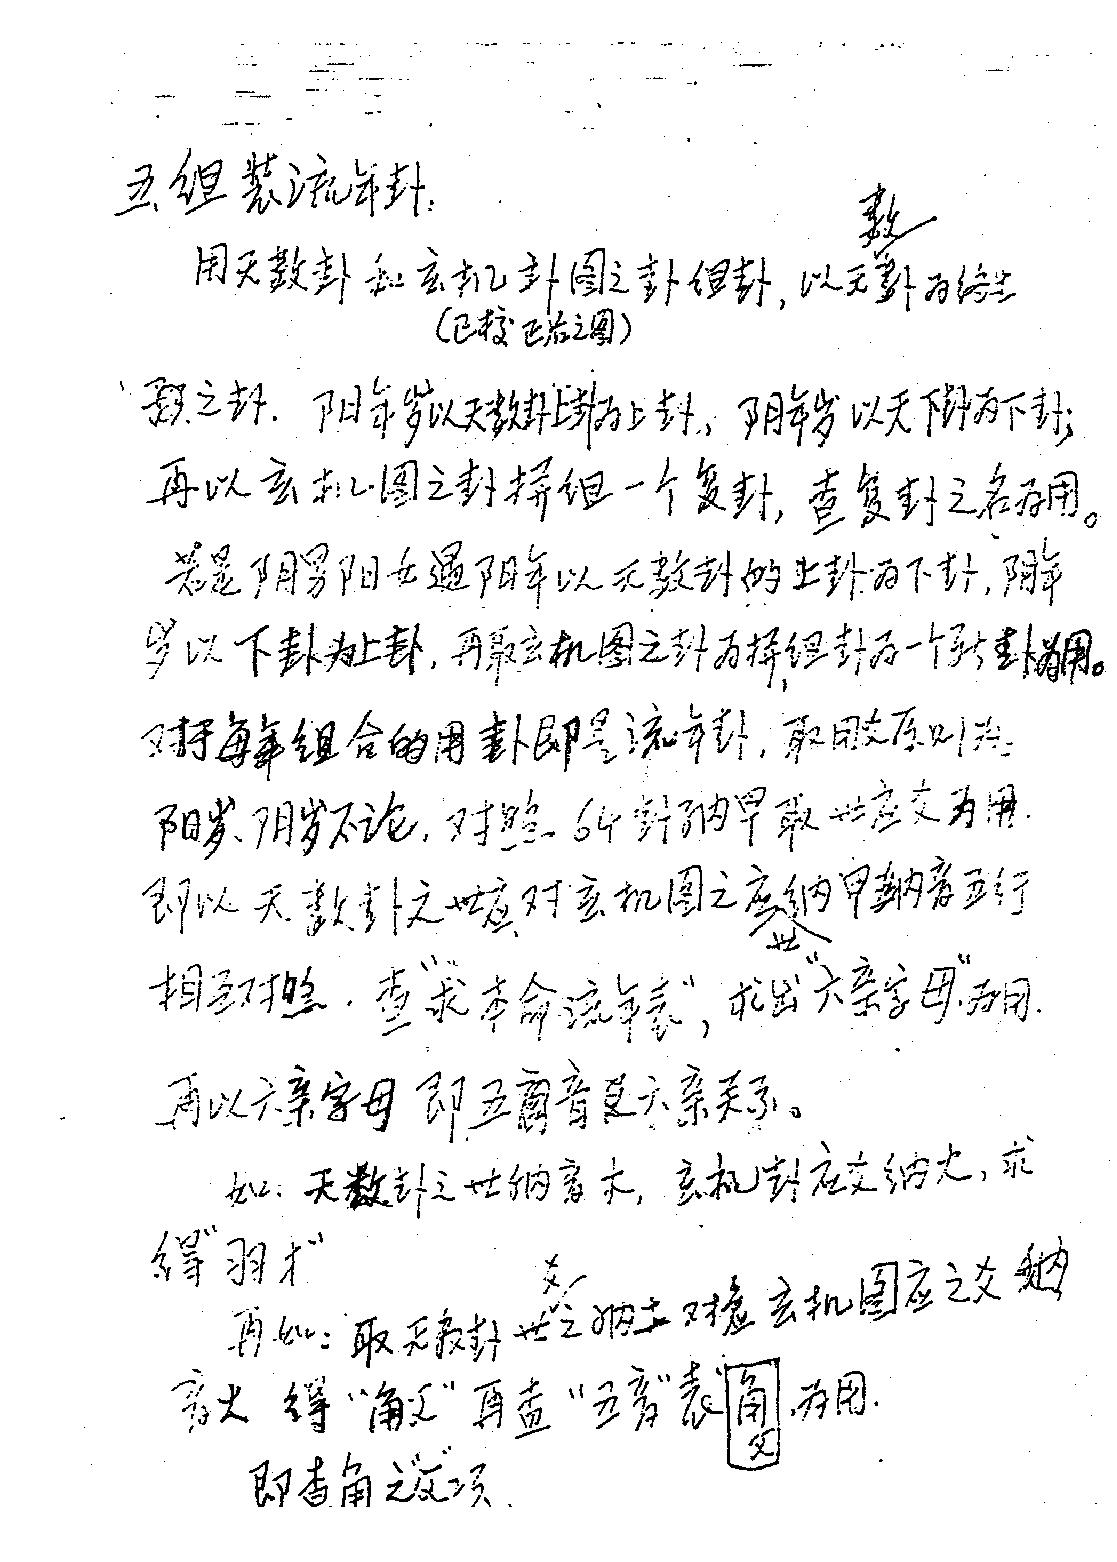 五、组装流年卦:
用天数卦和玄机卦图之卦组卦,以天数卦为
(已校正后之图)
之卦.阳年岁以天数卦上卦为上卦,阴年岁以天下卦为下卦;
再以玄机图之卦拼组一个复卦,查复卦之名为用。
若是阴男阳女遇阳年以天数卦的上卦为下卦,阴年
岁以下卦为上卦,再取玄机图之卦为拼组卦为一个新卦为用。
对于每年组合的用卦即是流年卦,取用爻原则为:
阳岁、阴岁不论,对照64卦纳甲取世应爻为用.
即以天数卦之世应对玄机图之应世纳甲纳音五行
相互对照.查“求本命流年表”,求出“六亲字母”为用.
再以六亲字母即五音查六亲关系。
如:天数卦之世纳音木,玄机卦应爻纳火,求
得“羽才”
再如:取天数卦世爻之纳土对应玄机图应之爻纳
音火 得“角父”再查“五音”表“角父为用.
即查角之“父”项.